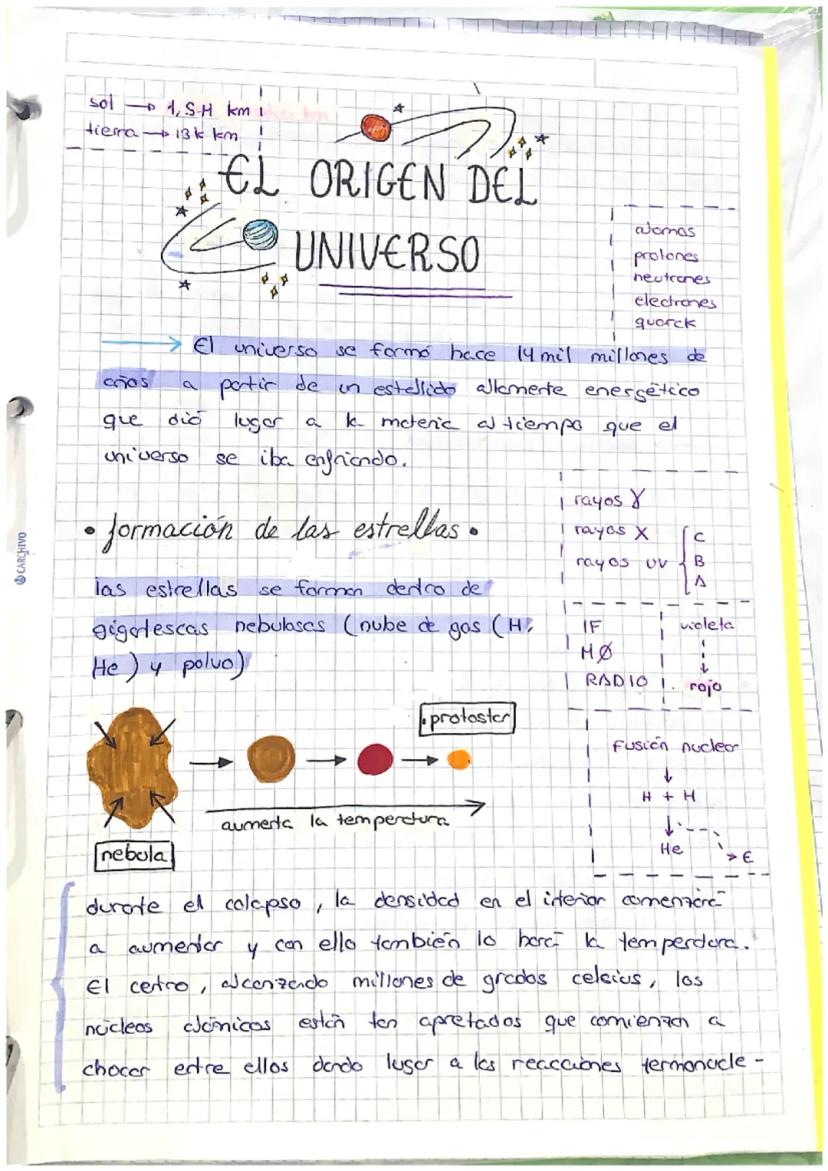 sol → 1,5M km
tierra → 13k km
EL ORIGEN DEL
UNIVERSO
atomos
protones
neutrones
electrones
quarck
El universo se formó hace 14 mil millones de
años a partir de un estallido altamente energético
que dió lugar a la materia al tiempo que el
universo se iba enfriando.
• formación de las estrellas •
las estrellas se forman dentro de
gigantescas nebulosas (nube de gas (H,
He) y polvo)
rayos γ
rayos X
rayos UV { C
B
A
IF
MØ
RADIO
violeta
↓
rojo
.protostar
nebula
aumenta la temperatura
Fusión nuclear
↓
H + H
↓
He
→ E
durante el colapso, la densidad en el interior comenzará
a aumentar y con ello también lo hará la temperatura.
El centro, alcanzando millones de grados celsius, los
núcleos atómicos están tan apretados que comienzan a
chocar entre ellos dando lugar a las reacciones termonucle-
CARCHIVO